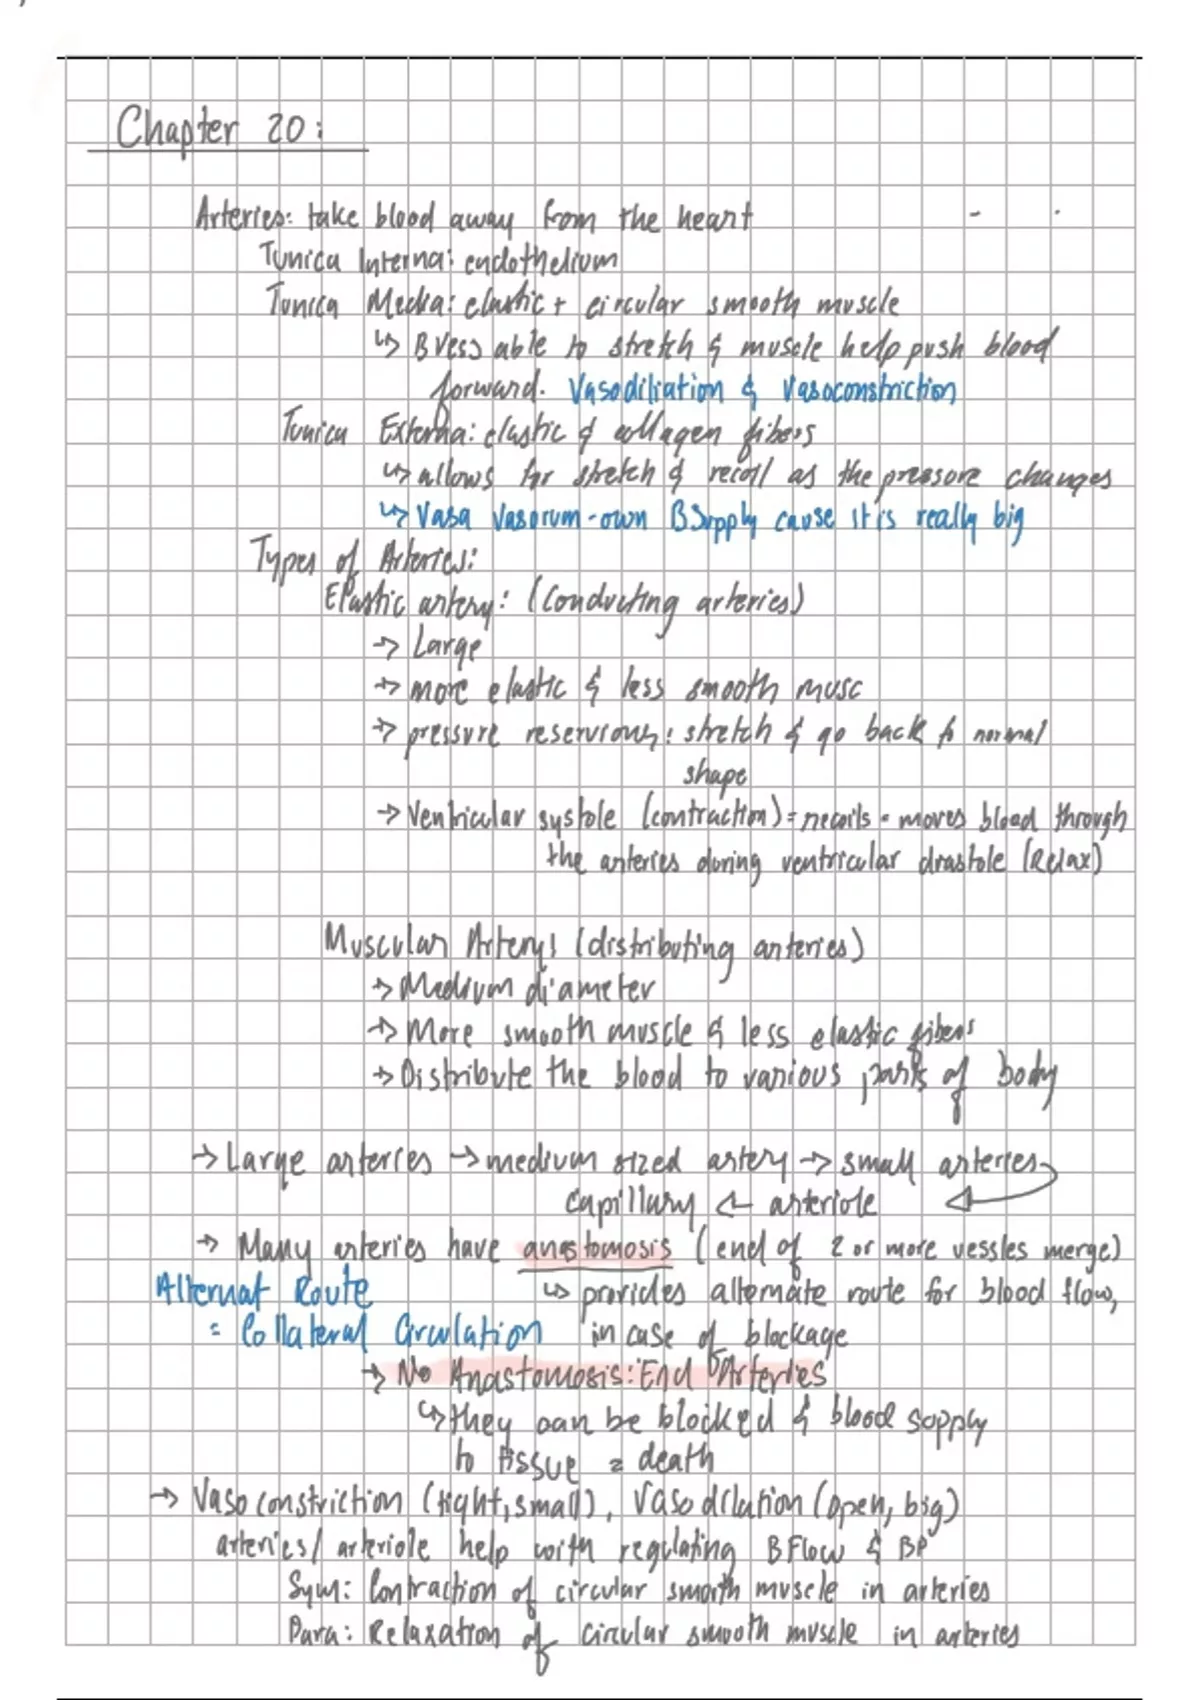 Chapter 20:
Arteries: take blood away from the heart
Tunica Interna: endothelium
Tunica Media: elastic + circular smooth muscle
↳ B vess able to stretch & muscle help push blood
forward. Vasodiliation & Vasoconstriction
Tunica Externa: elastic & collagen fibers
↳ allows for stretch & recoil as the pressure changes
↳ Vasa Vasorum - own B Supply cause it is really big
Types of Arteries:
Elastic artery: (Conducting arteries)
→ Large
→ more elastic & less smooth musc
→ pressure : stretch & go back to normal
shape
→ Ventricular systole (contraction) = recoils = moves blood through
the arteries during ventricular diastole (Relax)
Muscular Artery: (distributing arteries)
→ Medium diameter
→ More smooth muscle & less elastic fibers
→ Distribute the blood to various parts of body
→ Large arteries → medium sized artery → small arteries
capillary ← arteriole
→ Many arteries have anastomosis (end of 2 or more vessles merge)
Alternat Route ↳ provides alternate route for blood flow,
= Collateral Circulation in case of blockage
→ No Anastomosis: End Arteries
↳ they can be blocked & blood supply
to tissue = death
→ Vasoconstriction (tight, small), Vasodilation (open, big)
arteries/arteriole help with regulating B Flow & BP
Sym: Contraction of circular smooth muscle in arteries
Para: Relaxation of circular smooth muscle in arteries